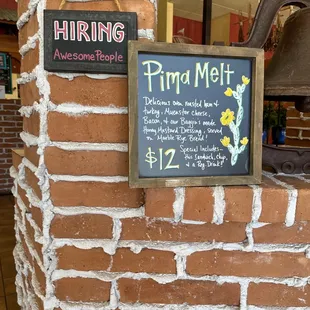 HIRING
AwesomePeople
Pima Melt
Delicious oven roasted ham &
turkey, Muenster cheese,
Bacon, & our Baggin's made
Honey Mustard Dressing, served
on Marble Rye Bread!
$12
Special Includes...
this sandwich, chips,
& a Reg Drink!